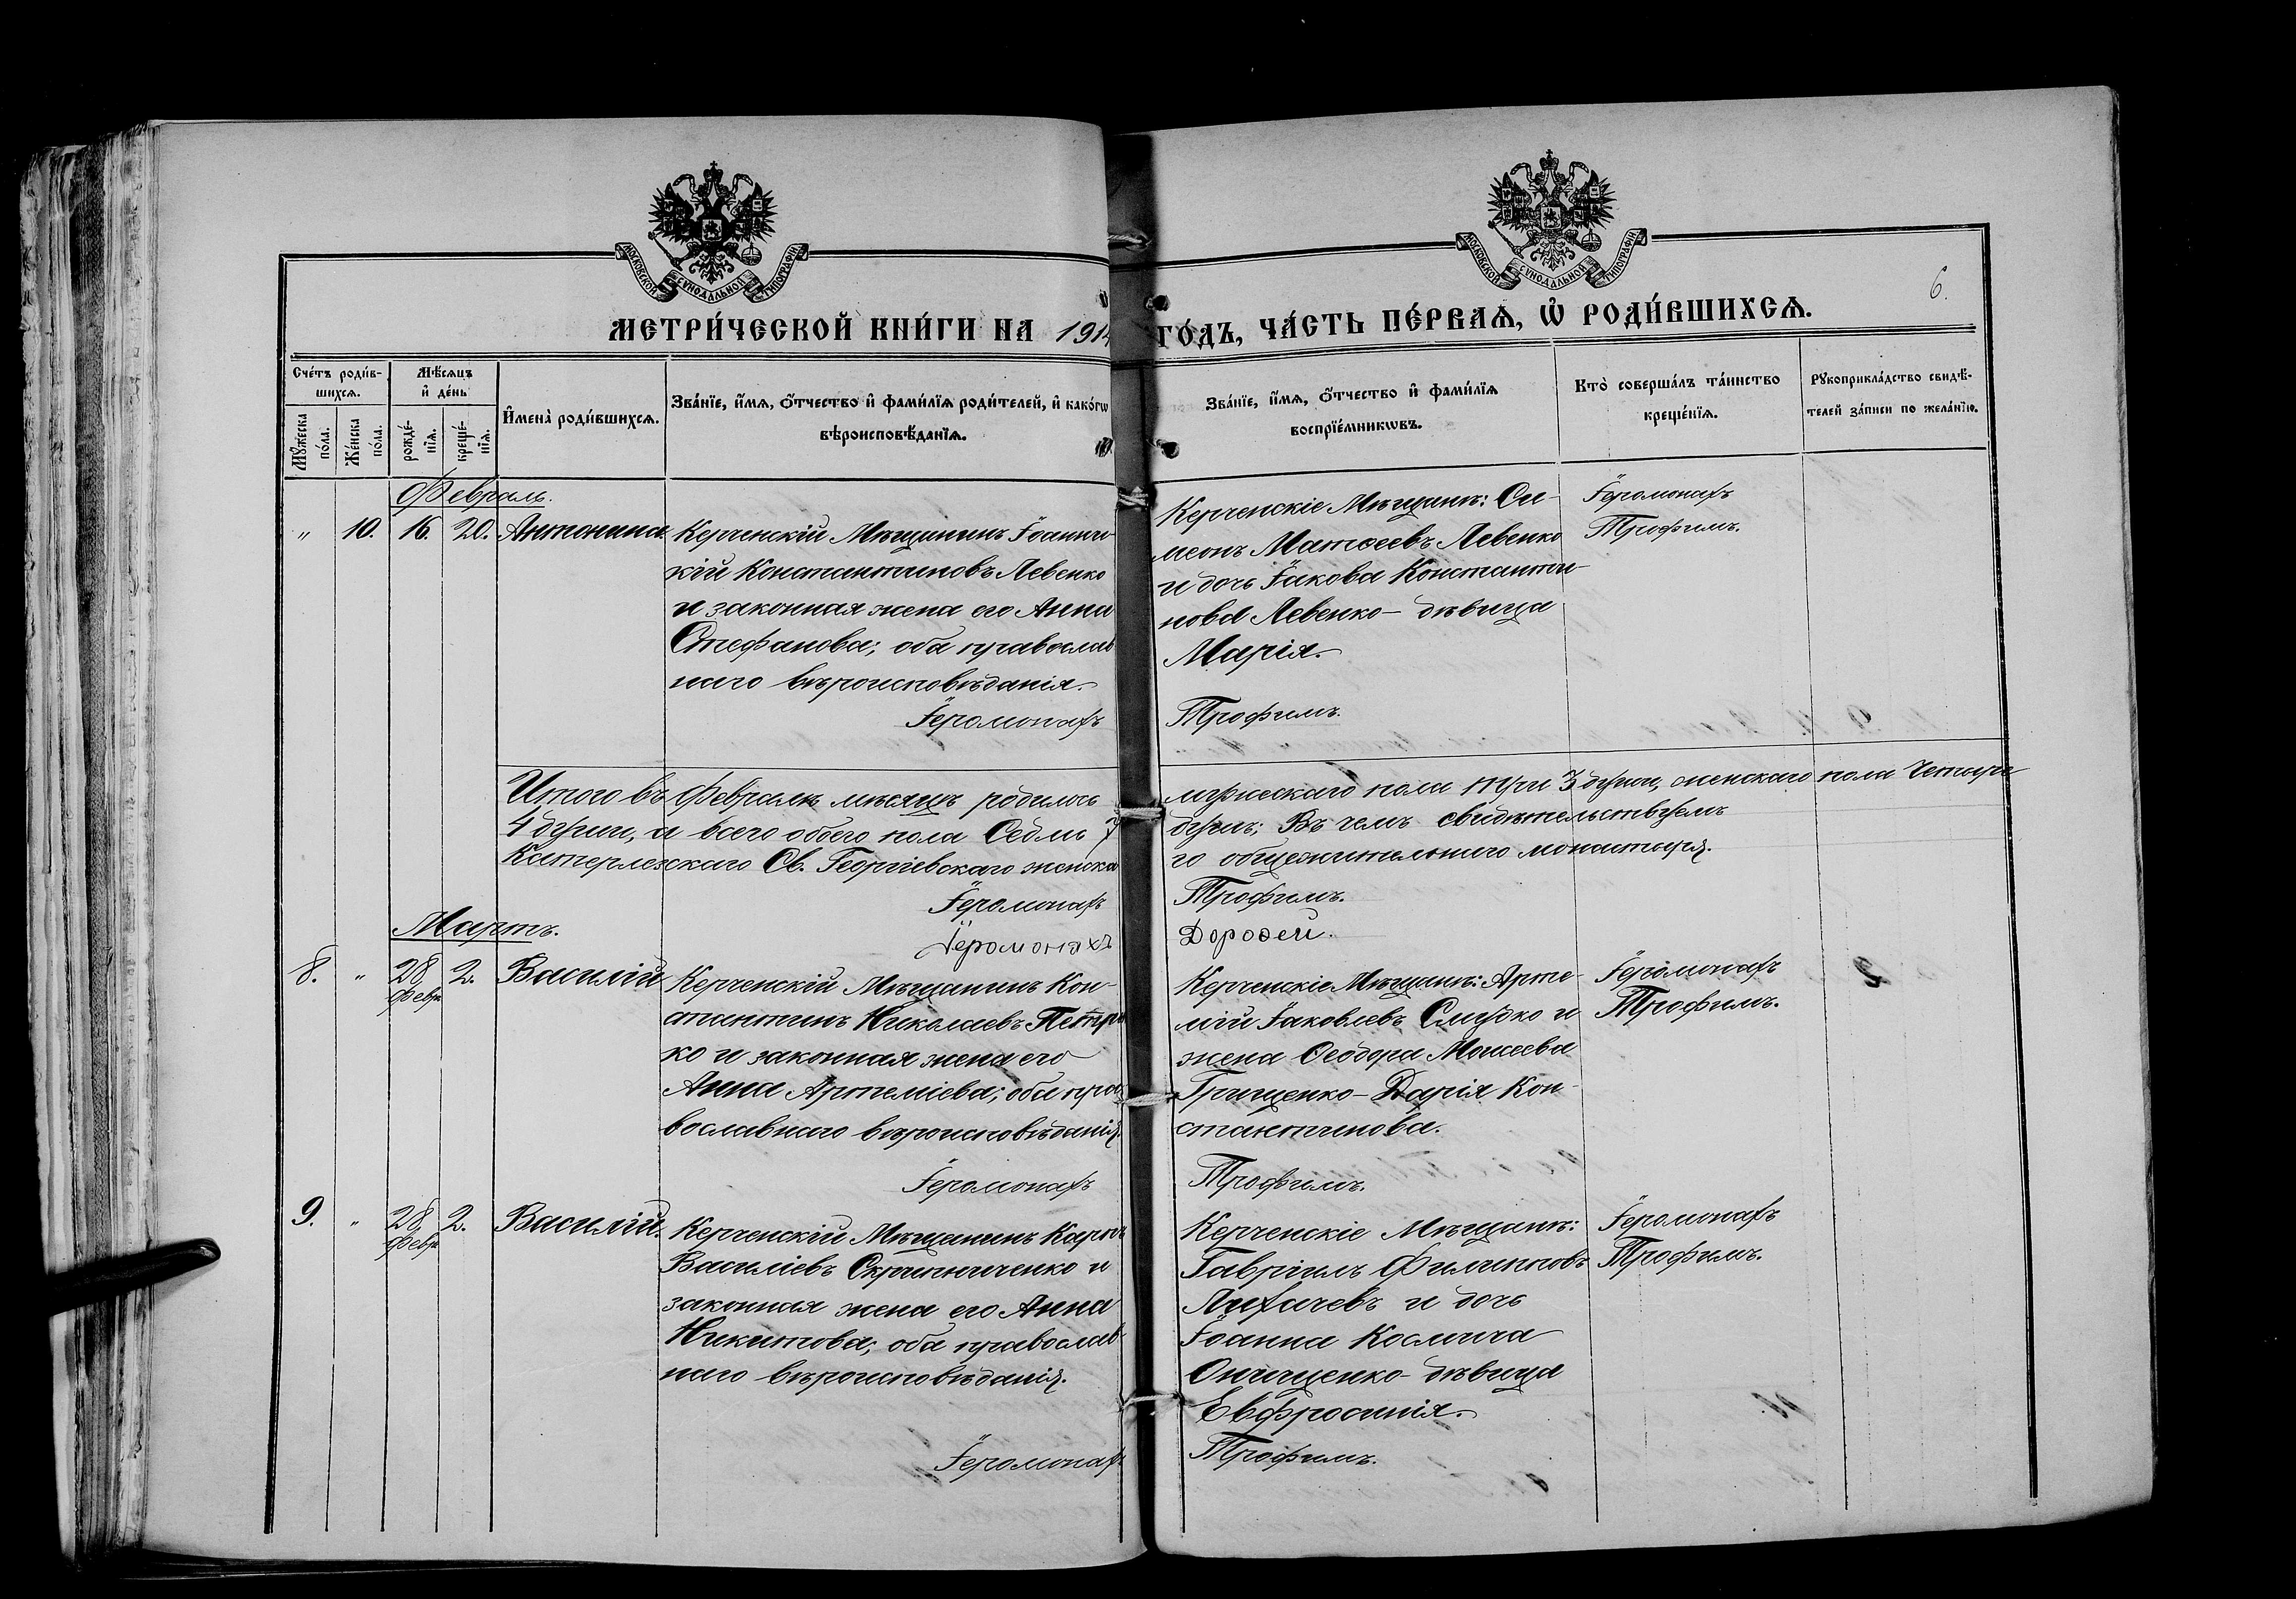 МОСКОВСКОЙ СУНОДАЛЬНОЙ ТИПОГРАФІИ
МОСКОВСКОЙ СУНОДАЛЬНОЙ ТИПОГРАФІИ
6.
МЕТРИ́ЧЕСКОЙ КНИ́ГИ НА 1914 ГО́ДЪ, ЧА́СТЬ ПЕ́РВАѦ, Ѡ҆ РОДИ́ВШИХСѦ.
Сче́тъ роди́в-
шихсѧ.
Мꙋ́жеска по́ла.
Же́нска по́ла.
Мѣ́сѧцъ
и҆ де́нь
рожде́-
нїѧ.
креще́-
нїѧ.
И҆мена̀ роди́вшихсѧ.
Зва́нїе, и҆́мѧ, ѻ҆́тчество и҆ фами́лїѧ роди́телей, и҆ како́гѡ
вѣроисповѣ́данїѧ.
Зва́нїе, и҆́мѧ, ѻ҆́тчество и҆ фами́лїѧ
воспрїе́мникѡвъ.
Кто̀ соверша́лъ та́инство
креще́нїѧ.
Рꙋкоприкла́дство свидѣ́-
телей за́писи по жела́нїю.
Февраль.
" 10. 16. 20. Антонина
Керченскій Мѣщанинъ Іоанни-
кій Константиновъ Левенко
и законная жена его Анна
Стефанова; оба православ
наго вѣроисповѣданія.
Іеромонахъ
Керченскіе Мѣщане: Си-
меонъ Матѳеевъ Левенко
и дочь Іакова Константи-
нова Левенко - дѣвица
Марія.
Трофимъ.
Іеромонахъ
Трофимъ.
Итого въ Февралѣ мѣсяцѣ родилось мужескаго пола три 3 души, женскаго пола четыре
4 души, а всего обоего пола Седмь 7 душъ; Въ чемъ свидѣтельствуемъ
Катерлезскаго Св. Георгіевскаго женска го общежительнаго монастыря.
Іеромонахъ Трофимъ.
Іеромонахъ Дороѳей.
Мартъ.
8. " 28 Февр. 2. Василій
Керченскій Мѣщанинъ Кон-
стантинъ Николаевъ Петрен
ко и законная жена его
Анна Артеміева; оба пра
вославнаго вѣроисповѣданія.
Іеромонахъ
Керченскіе Мѣщане: Арте-
мій Іаковлевъ и
жена Ѳеодора Моисеева
Грищенко - Дарія Кон-
стантинова.
Трофимъ.
Іеромонахъ
Трофимъ.
9. " 28 Февр. 2. Василій.
Керченскій Мѣщанинъ Карпъ
Василіевъ Скрипниченко и
законная жена его Анна
Никитова; оба православ-
наго вѣроисповѣданія.
Іеромонахъ
Керченскіе Мѣщане:
Гавріилъ Филипповъ
Лихачевъ и дочь
Іоанна Космича
Онищенко - дѣвица
Евфросинія.
Трофимъ.
Іеромонахъ
Трофимъ.